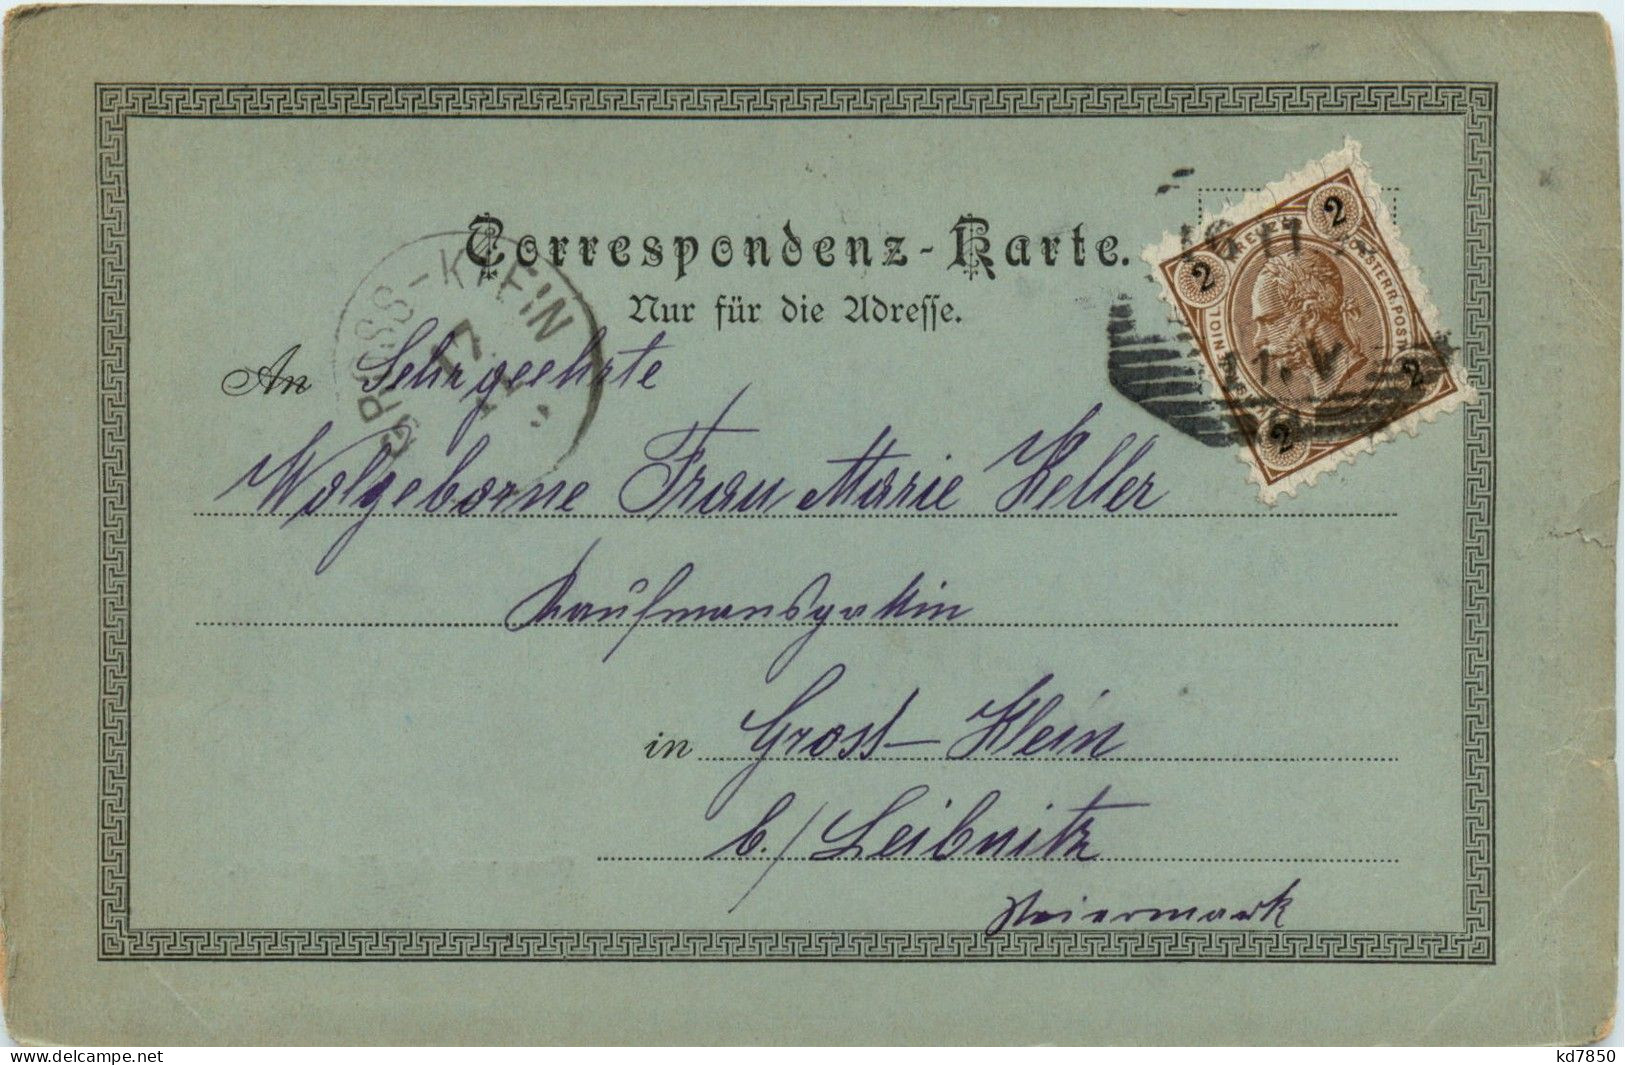 Correspondenz-Karte.
Nur für die Adresse.
An Sehrgeehrte
Wolgeborne Frau Marie Keller
Kaufmansgattin
in Gross-Klein
b./ Leibnitz
Steiermark
GROSS-KLEIN
17
2
2
2
2
11. V
www.delcampe.net
kd7850